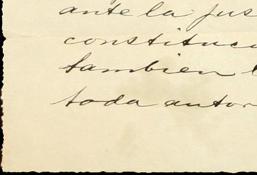 ante la jus
constituca
tambien l
toda autor